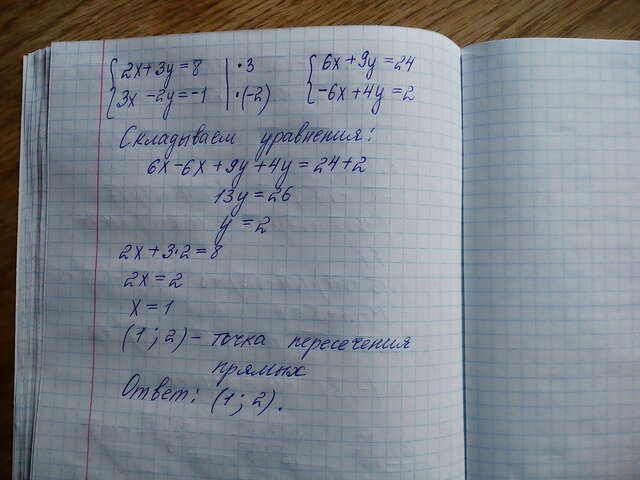 {2x+3y=8 |·3 {6x+9y=24
{3x-2y=-1 |·(-2) {-6x+4y=2
Складываем уравнения:
6x-6x+9y+4y=24+2
13y=26
y=2
2x+3·2=8
2x=2
x=1
(1;2)- точка пересечения
прямых
Ответ: (1;2).